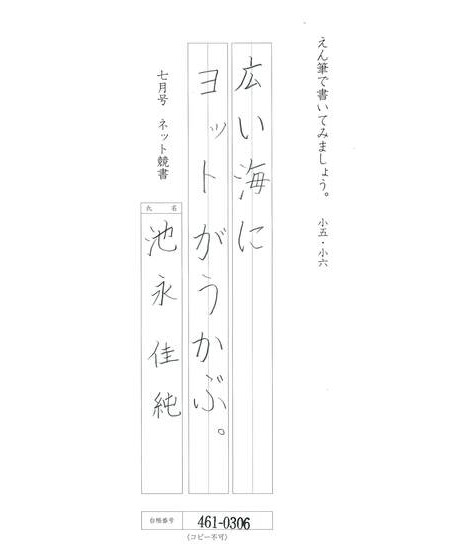 えん筆で書いてみましょう。 小五・小六
広い海に
ヨットがうかぶ。
七月号 ネット競書
氏名
池永佳純
台帳番号 461-0306
(コピー不可)